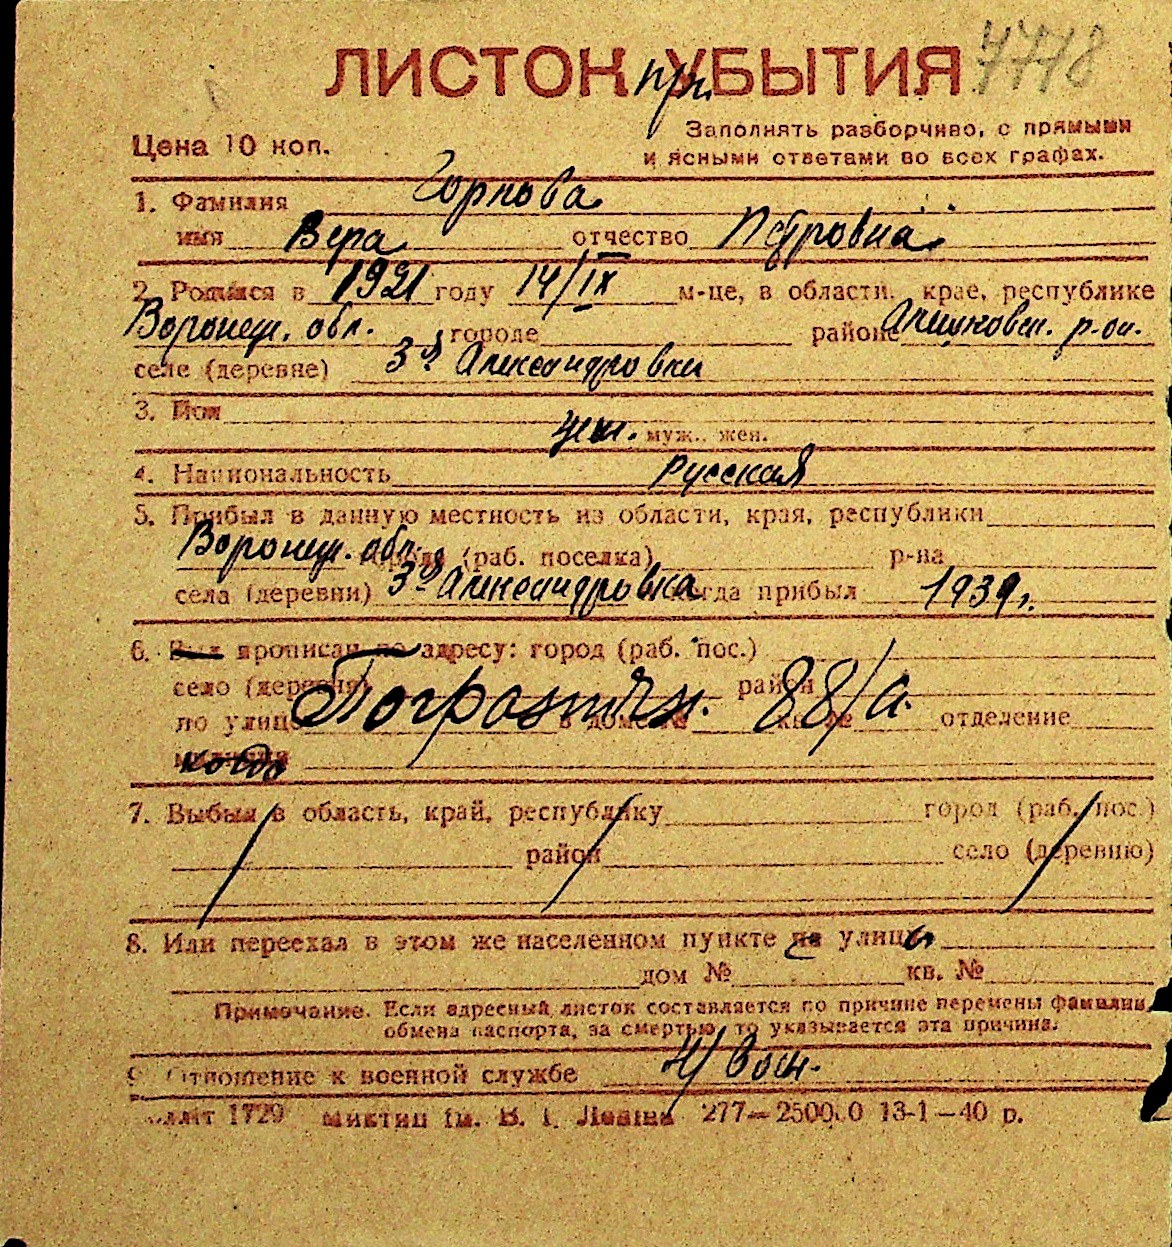 ЛИСТОК при УБЫТИЯ 7718
Цена 10 коп.
Заполнять разборчиво, с прямыми
и ясными ответами во всех графах.
1. Фамилия Горлова
имя Вера отчество Петровна
2. Родился в 1921 году 14/IX м-це, в области, крае, республике
Воронеж. обл. городе районе р-он.
селе (деревне) 3я Александровка
3. Пол
жен. муж., жен.
4. Национальность Русская
5. Прибыл в данную местность из области, края, республики
Воронеж. обл. города (раб. поселка) р-на
села (деревни) 3я Александровка когда прибыл 1939г.
6. Был прописан по адресу: город (раб. пос.)
село (деревня) район
по улице Пограничн. в доме № 88/а. кв. № отделение
милиции
7. Выбыл в область, край, республику город (раб. пос.)
район село (деревню)
8. Или переехал в этом же населенном пункте на улицу
дом № кв. №
Примечание. Если адресный листок составляется по причине перемены фамилии,
обмена паспорта, за смертью, то указывается эта причина.
9. Отношение к военной службе Н/воен.
1729 им. В. І. Леніна 277—250000 13-1—40 р.